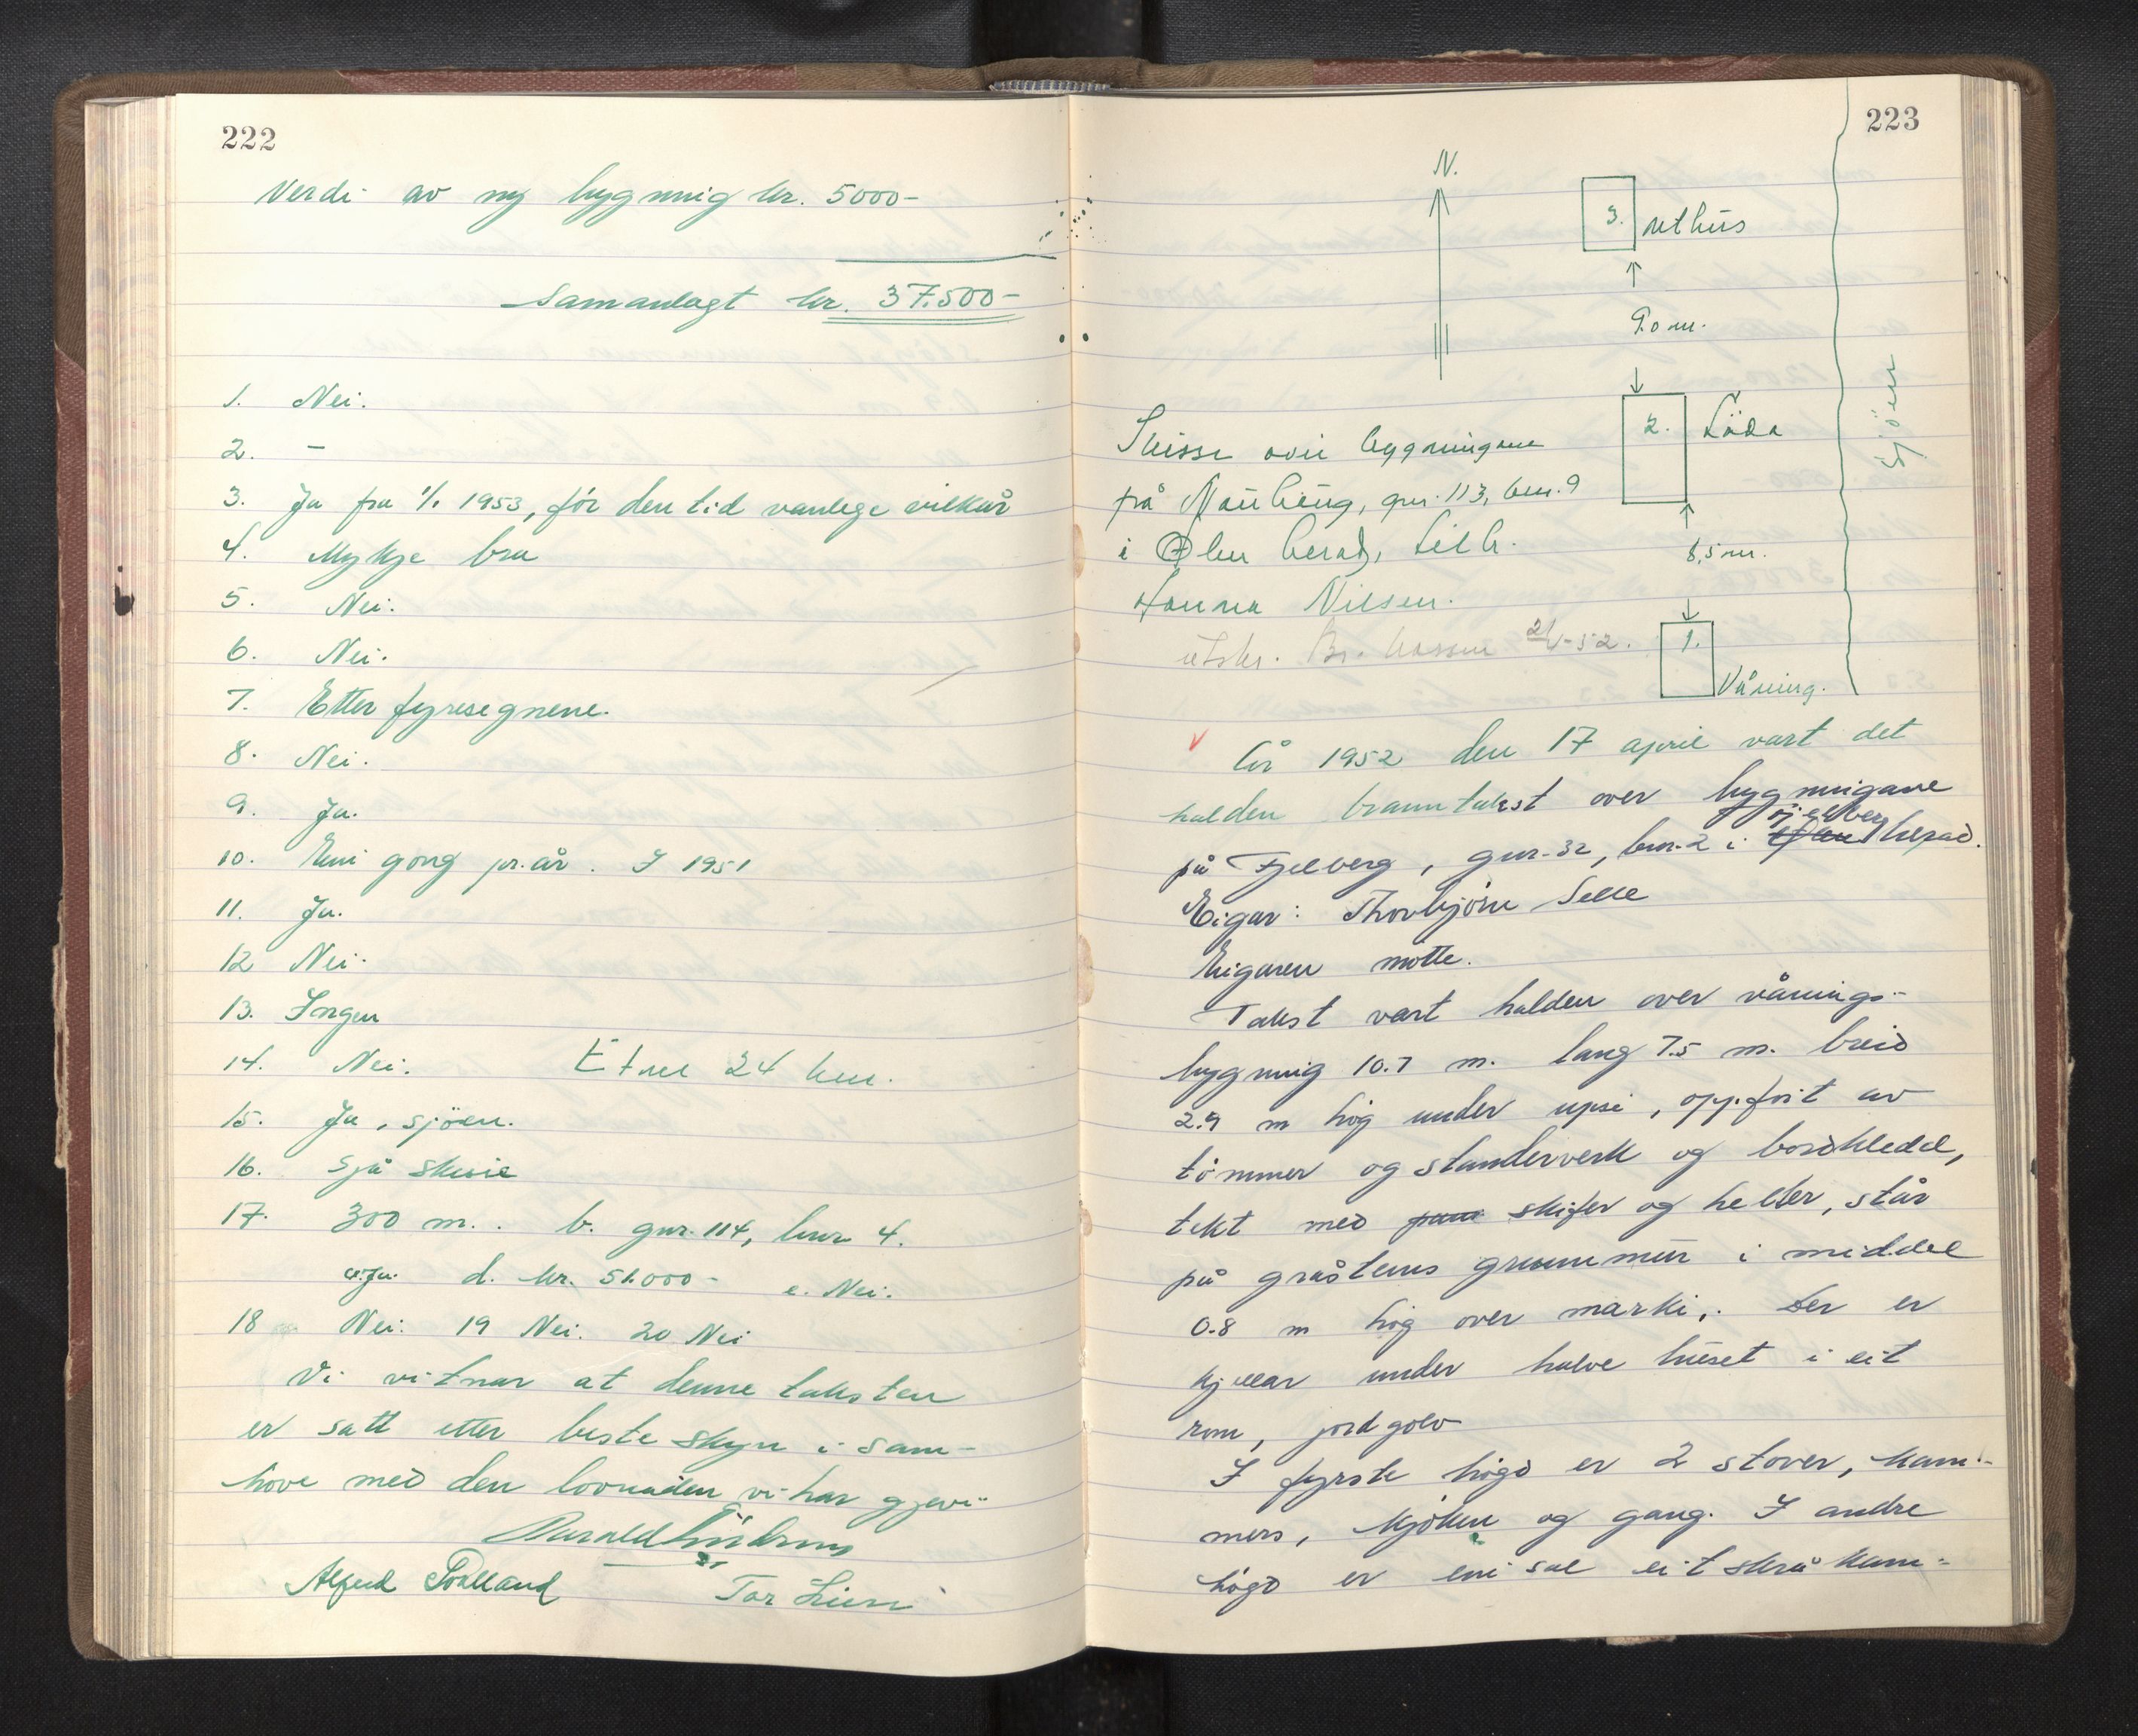 222
Verdi av ny bygning kr. 5000-
Samanlagt kr. 37.500-
1. Nei.
2. -
3. Ja fra 1/1 1953, för den tid vanlege vilkår
4. Mykje bra
5. Nei.
6. Nei.
7. Etter fyresegnene.
8. Nei.
9. Ja.
10. Ein gong pr. år. I 1951
11. Ja.
12 Nei.
13. Ingen
14. Nei. Etne 24 km.
15. Ja, sjöen.
16. Sjå skisse
17. 300 m. b. gnr. 114, bnr 4.
c. Ja. d. kr. 51.000- e. Nei.
18 Nei. 19 Nei. 20 Nei
Vi vitnar at denne taksten
er satt etter beste skyn i sam-
høve med den lovnaden vi har gjevi
Alfred
Tor Lien
223
N.
3. uthus
9.0 m.
2. Löda
8,5 m.
1. Våning.
Sjöen
Skisse over bygningane
på, gnr. 113, bnr. 9
i Ølen herad, tilh.
Hanna Nilsen.
utskr. 52.
År 1952 den 17 april vart det
halden branntakst over bygningane
Fjelberg
på Fjelberg, gnr. 32, bnr. 2 i Ølen herad.
Eigar: Thorbjörn Selle
Eigaren møtte.
Takst vart halden over vånings-
bygning 10.7 m. lang 7.5 m. breid
2.9 m høg under upsi, oppført av
tömmer og standerverk og bordkledd,
tekt med skifer og heller, står
på gråsteins grunnmur i middel
0.8 m høg over marki. Der er
kjellar under halve huset i eit
rom, jordgolv
I fyrste høgd er 2 stover, kam-
mers, kjøken og gang. I andre
høgd er ein sal eit skrå kam-